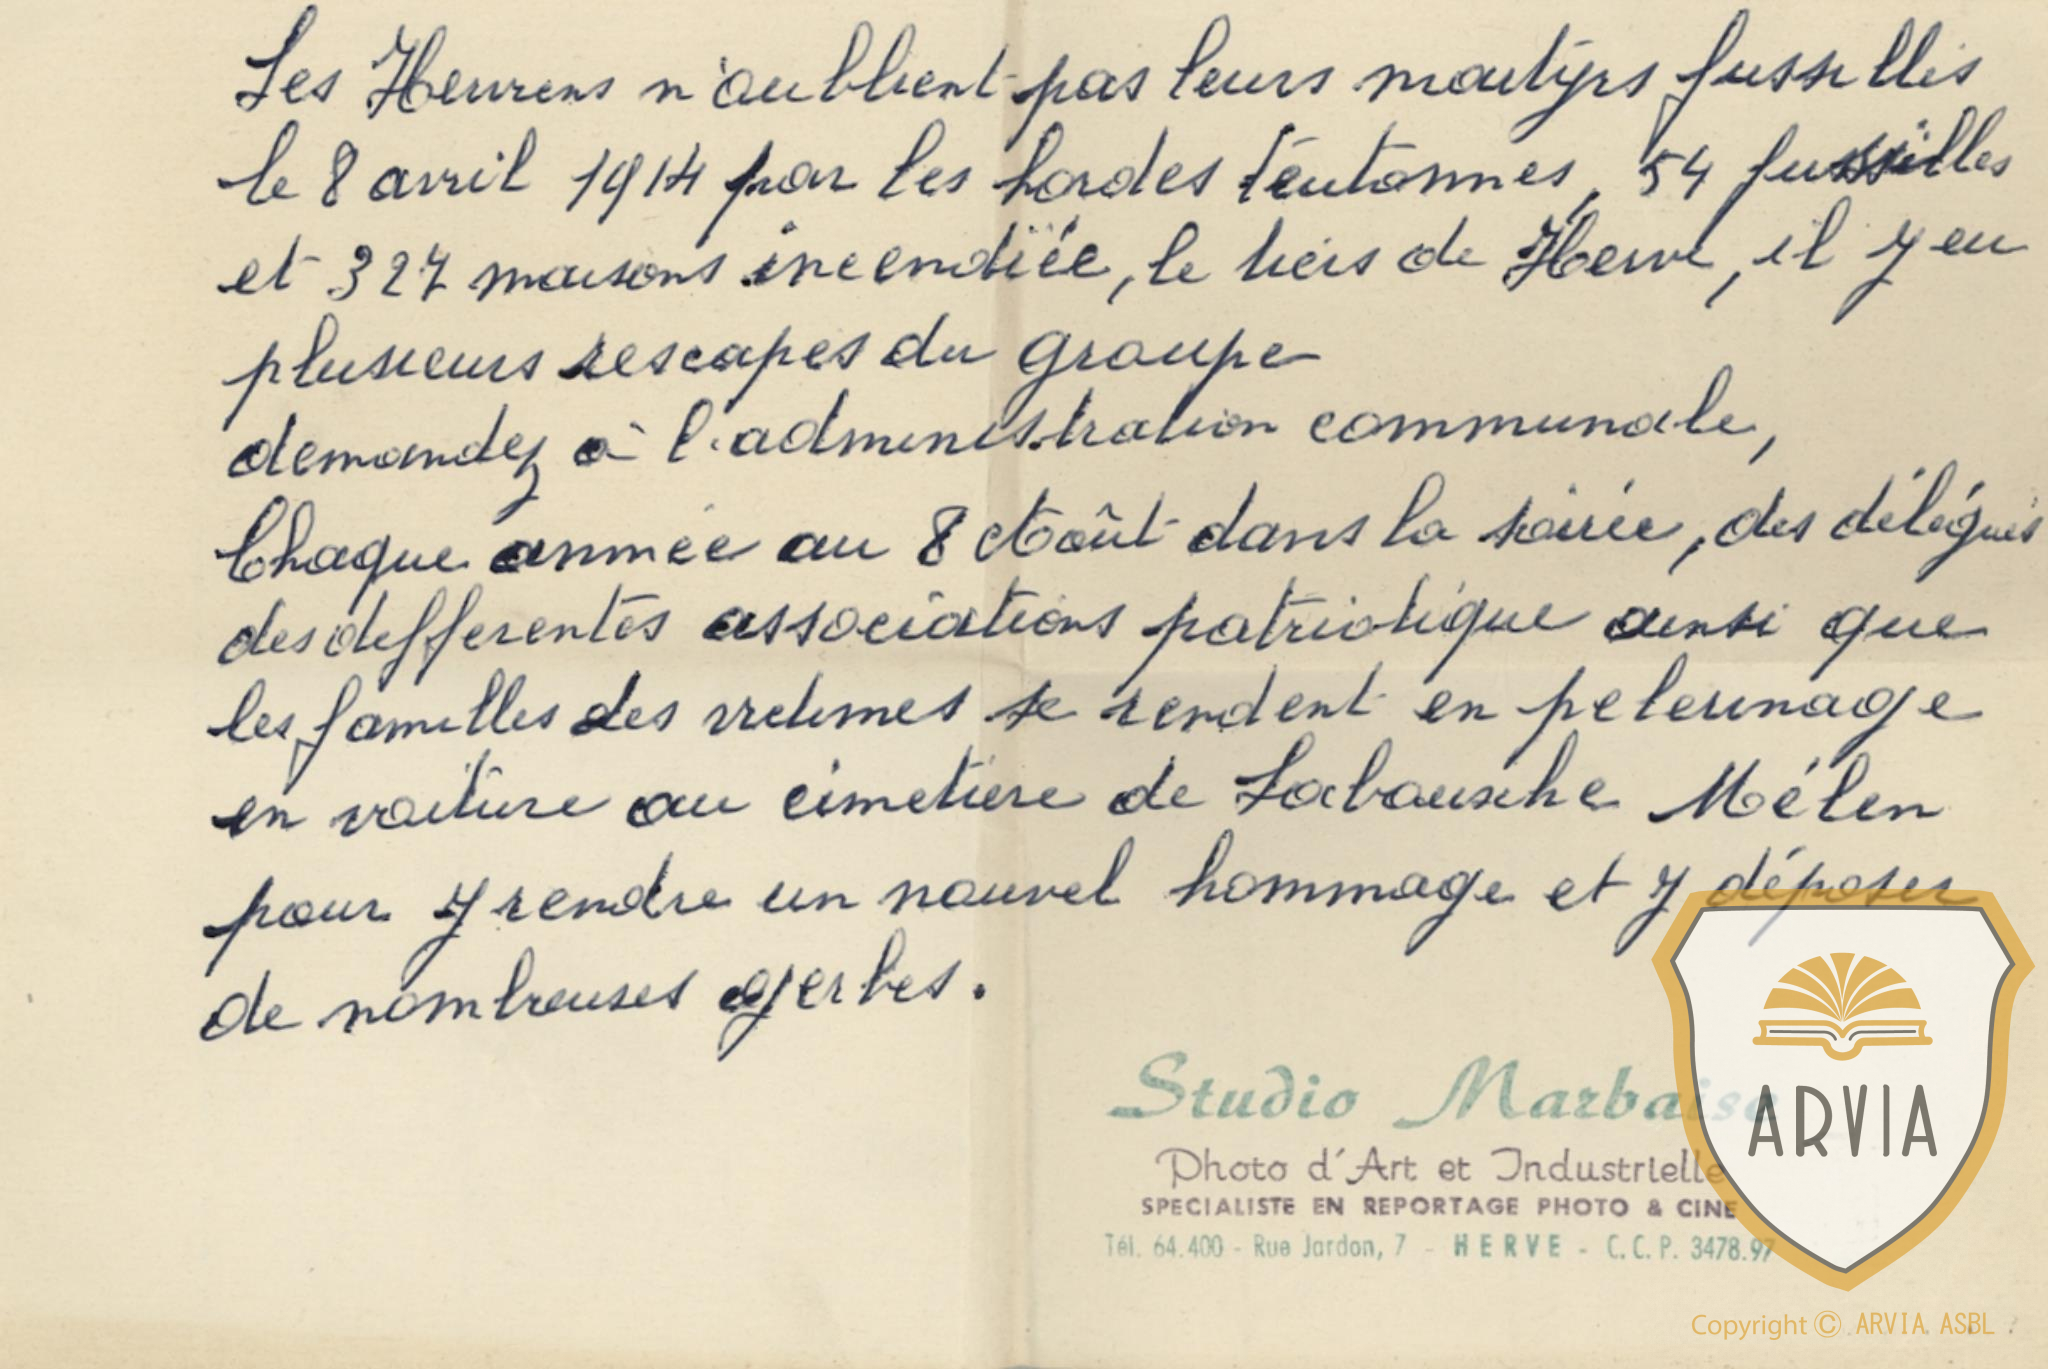 Les Herviens n'oublient pas leurs martyrs fussillés
le 8 avril 1914 par les hordes teutonnes, 54 fussilles
et 327 maisons incendiée, le tiers de Herve, il y eu
plusieurs rescapes du groupe
demandez à l'administration communale,
Chaque année au 8 Août dans la soirée, des délégués
des defferentes associations patriotique ainsi que
les familles des victimes se rendent en pelerinage
en voiture au cimetière de Labouxhe Mélen
pour y rendre un nouvel hommage et y déposer
de nombreuses gerbes.
Studio Marbaise
Photo d'Art et Industrielle
SPECIALISTE EN REPORTAGE PHOTO & CINE
Tél. 64.400 - Rue Jardon, 7 - HERVE - C.C.P. 3478.97
ARVIA
Copyright © ARVIA ASBL